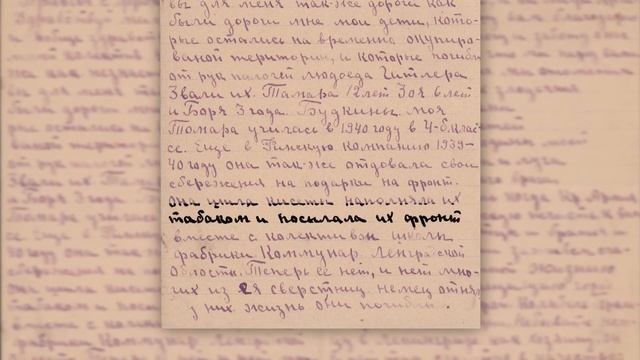 вы для меня так-же дороги как
были дороги мне мои дети, кото-
рые остались на временно окупиро-
ваной територии, и которые погибли
от рук палачей людоеда Гитлера
Звали их. Тамара 12 лет Зоя 6 лет
и Боря 3 года. Будкины. моя
Томара училась в 1940 году в 4-б. клас-
се. Еще в Финскую компанию 1939-
40 году она так-же отдовала свои
сбережения на подарки на фронт.
Она шила кисеты наполняла их
табаком и посылала их фронт
вместе с колективом школы
фабрики Коммунар. Ленгр ской
Области. Теперь ее нет, и нет мно-
гих из ея сверстниц. немец отнял
у них жизнь они погибли.